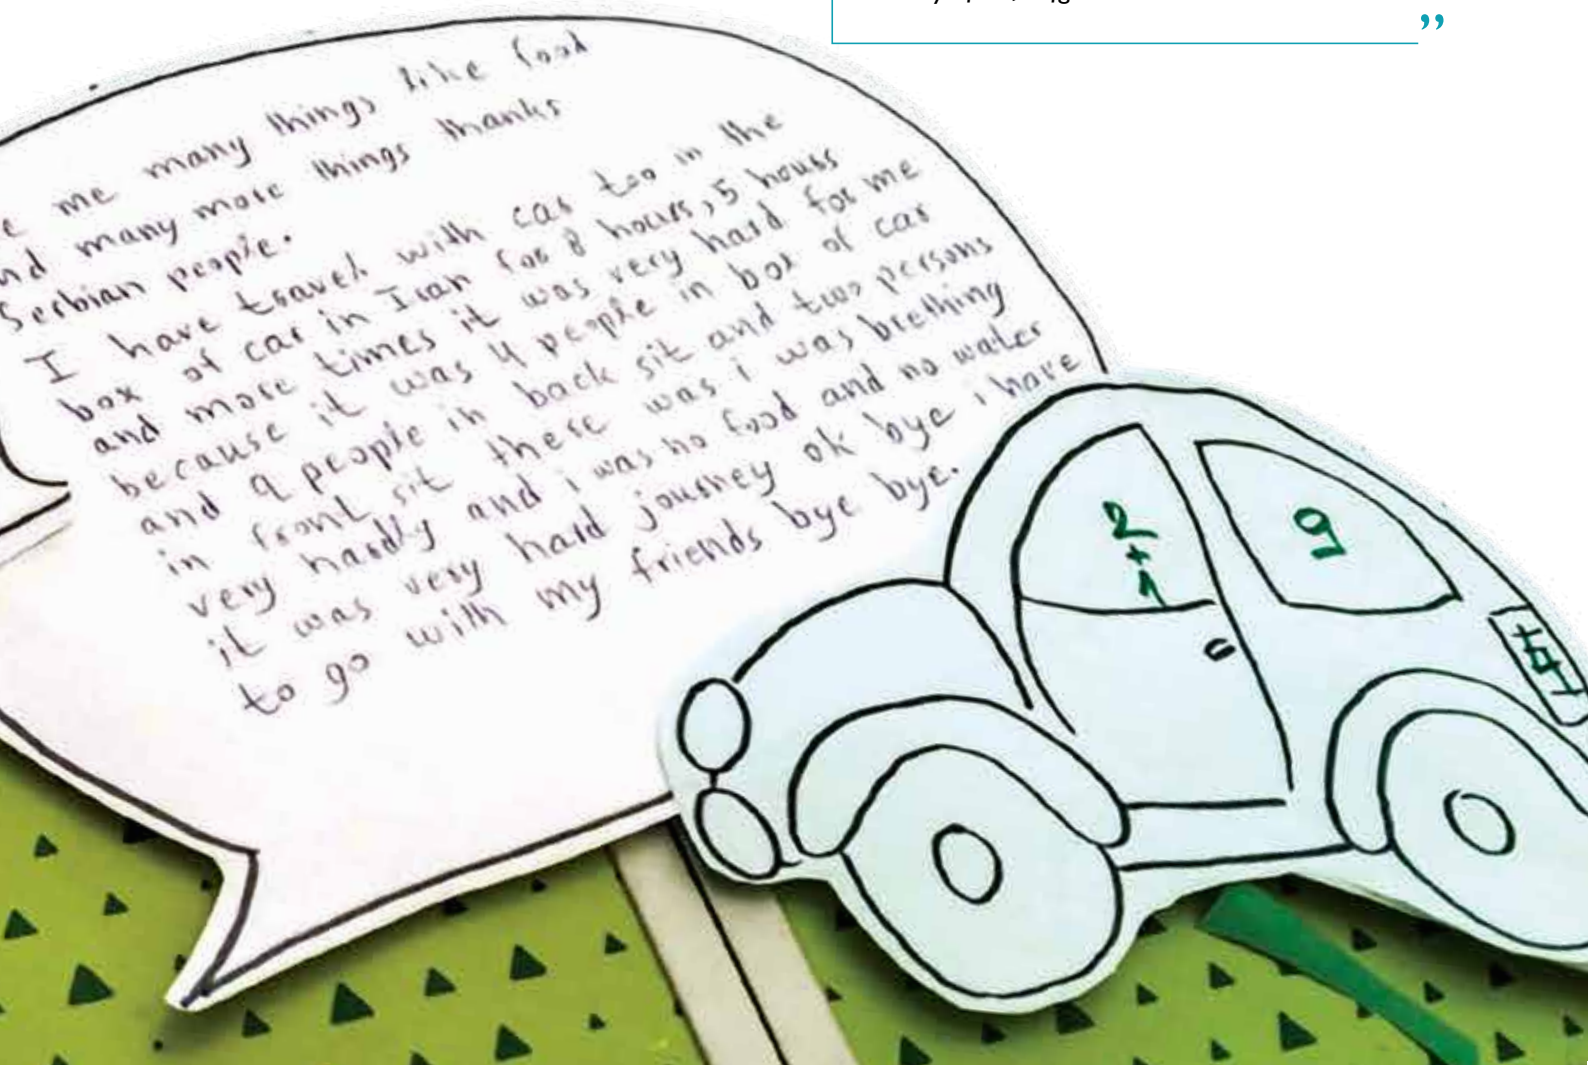 ”
me many things like food
many more things thanks
Serbian people.
I have travel with car too in the
box of car in Iran for 8 hours, 5 hours
and more times it was very hard for me
because it was 4 people in box of car
and 9 people in back sit and two persons
in front sit there was i was brething
very hardly and i was no food and no water
it was very hard journey ok bye i have
to go with my friends bye bye.
2
+
1
9
4